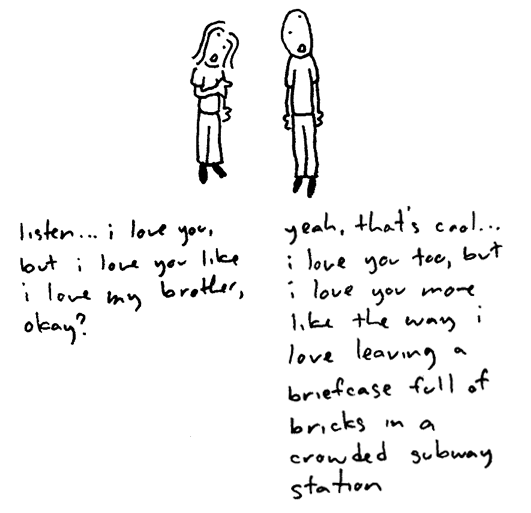 listen... i love you,
but i love you like
i love my brother,
okay?
yeah, that's cool...
i love you too, but
i love you more
like the way i
love leaving a
briefcase full of
bricks in a
crowded subway
station